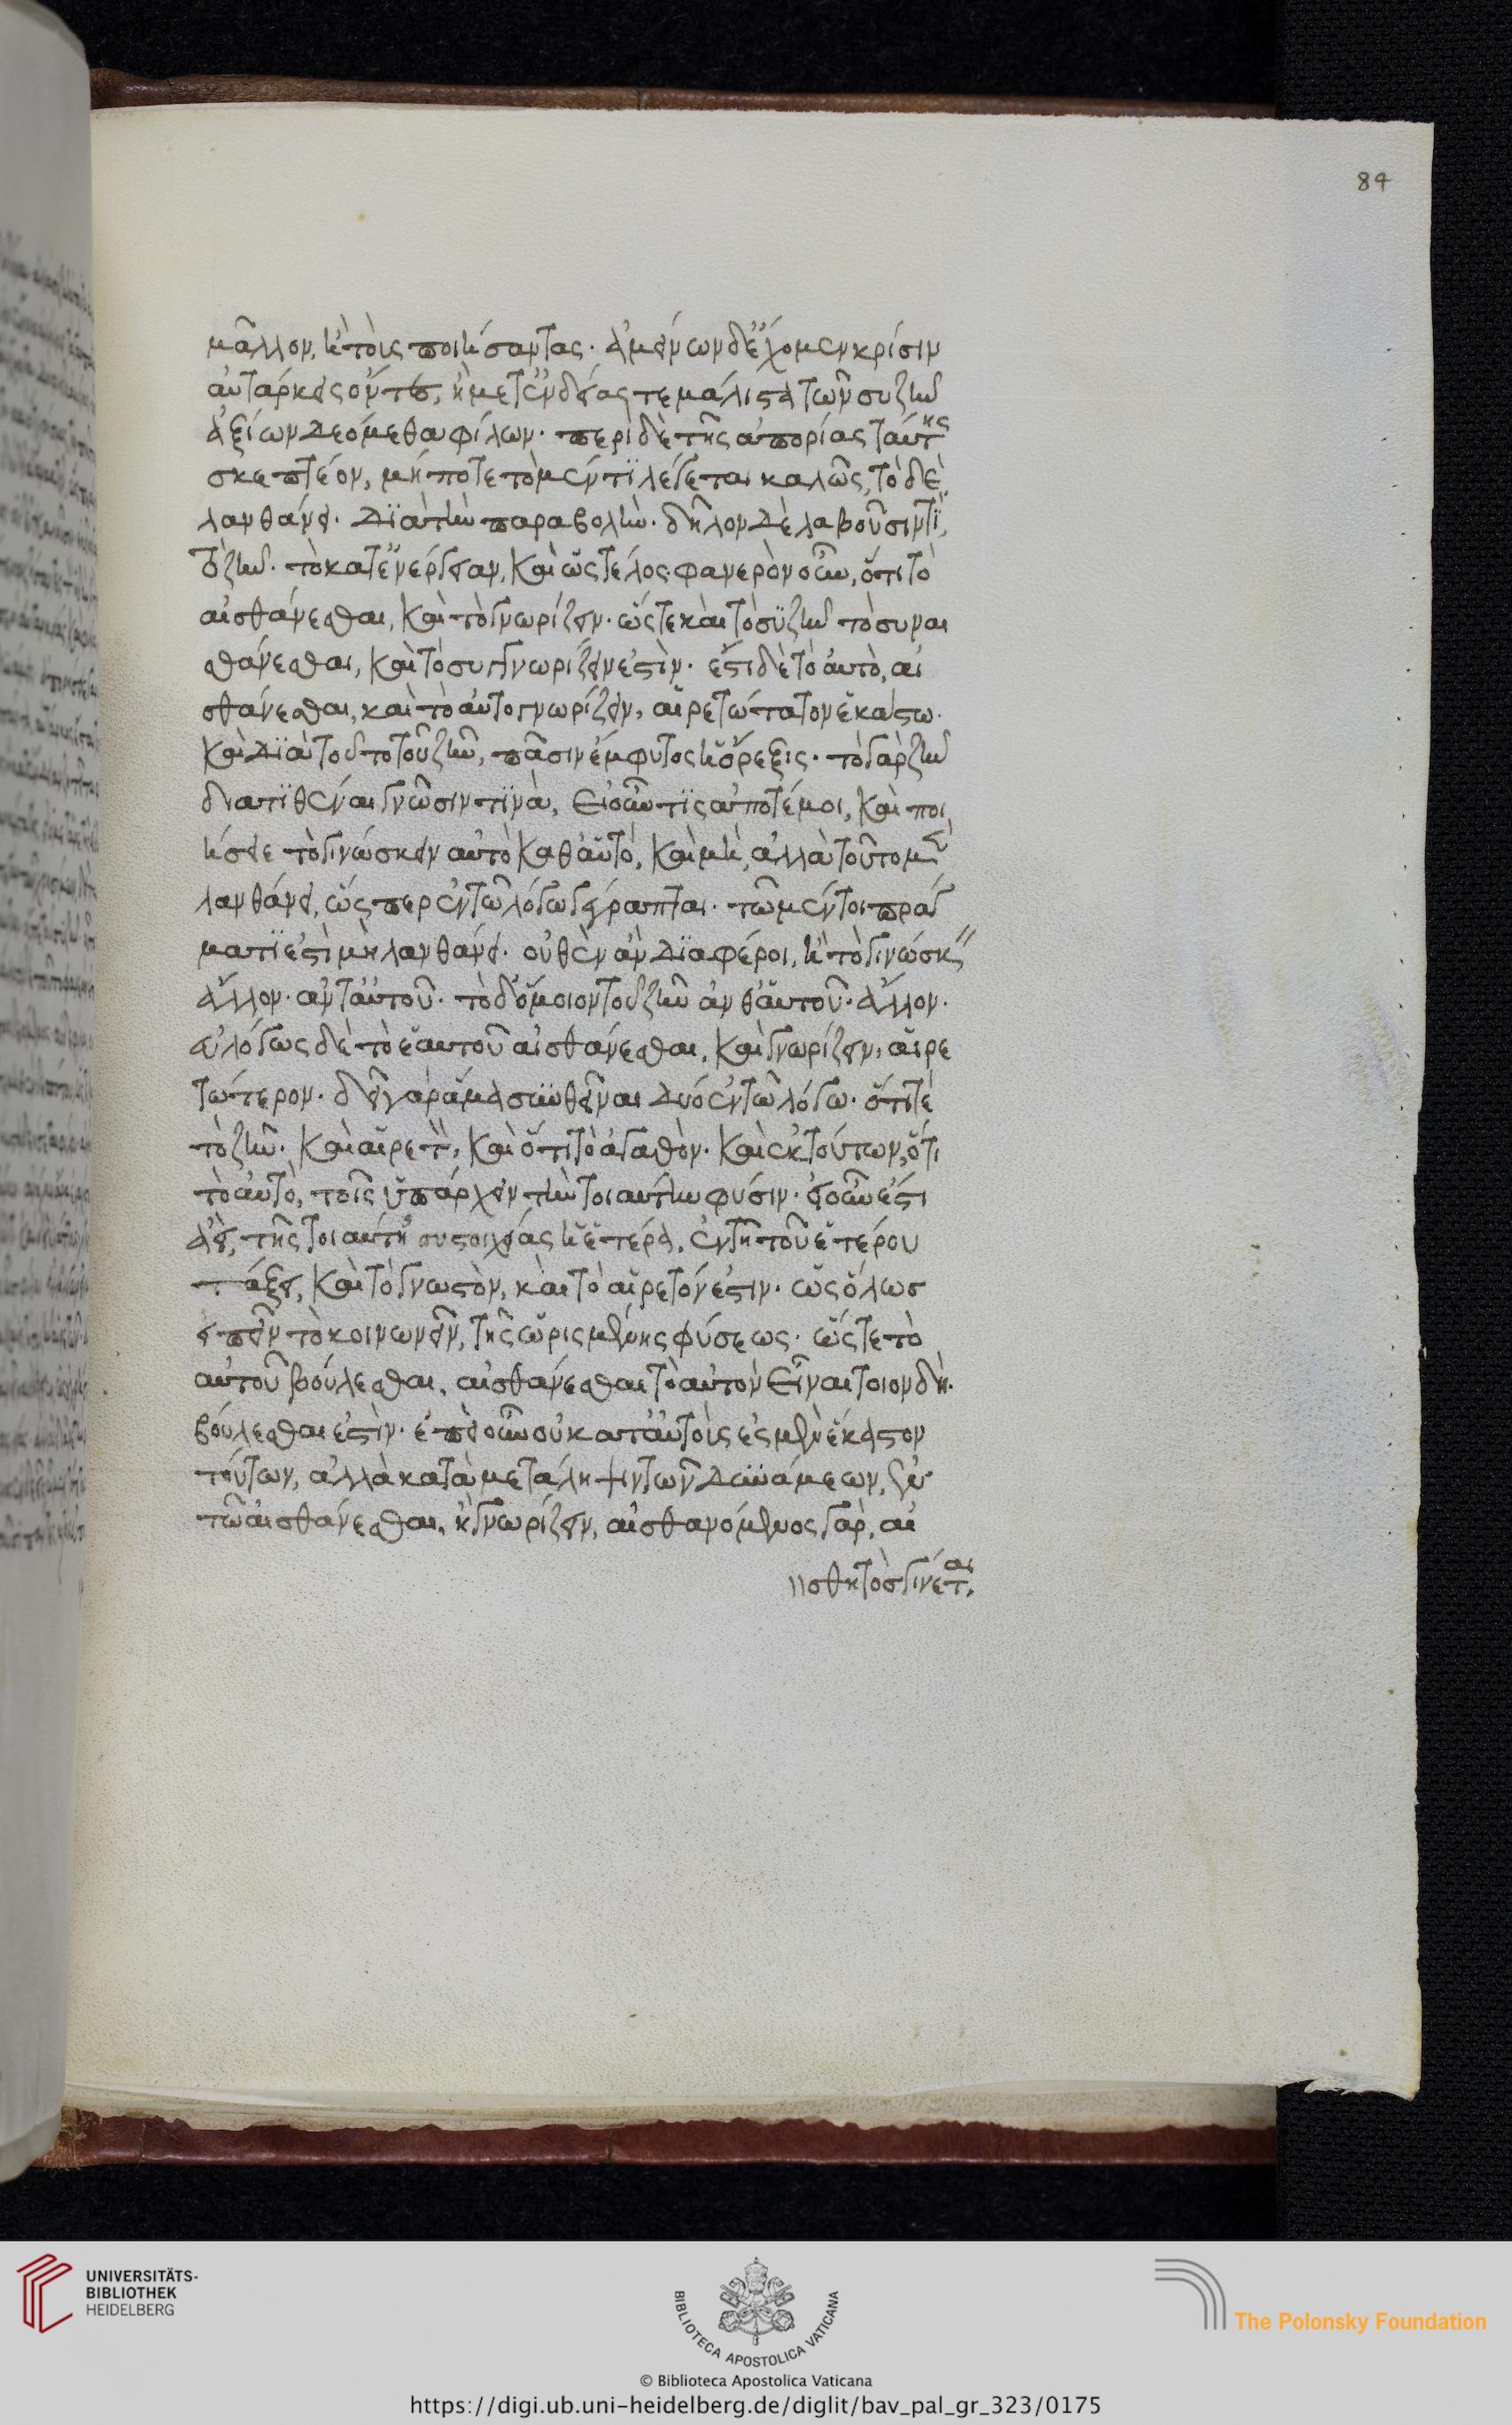 84
μᾶλλον, ἢ τοὺς ποιήσαντας. ἀμείνων δ' ἔχομεν κρίσιν
αὐτάρκεις ὄντες, ἢ μετ' ἐνδείας τε μάλιστα τῶν συζῆν
ἀξίων δεόμεθα φίλων. περὶ δὲ τῆς ἀπορίας ταύτης
σκεπτέον, μή ποτε τὸ μέν τι λέγεται καλῶς, τὸ δὲ
λανθάνει. διὰ τὴν παραβολήν. δῆλον δὲ λαβοῦσιν τί
τὸ ζῆν. τὸ κατ' ἐνέργειαν, καὶ ὡς τέλος. φανερὸν οὖν, ὅτι τὸ
αἰσθάνεσθαι, καὶ τὸ γνωρίζειν. ὥστε καὶ τὸ συζῆν τὸ συναι
σθάνεσθαι, καὶ τὸ συγγνωρίζειν ἐστίν. ἔστι δὲ τὸ αὐτὸ, αἰ
σθάνεσθαι, καὶ τὸ αὐτὸ γνωρίζειν, αἱρετώτατον ἑκάστω.
καὶ διὰ τοῦτο τοῦ ζῆν, πᾶσιν ἔμφυτος ἡ ὄρεξις. τὸ γὰρ ζῆν
διατιθέναι γνῶσιν τινὰ, εἰ οὖν τις ἀποτέμοι, καὶ ποι
ήσειε τὸ γινώσκειν αὐτὸ καθ' αὑτό, καὶ μὴ, ἀλλὰ τοῦτο μὲν
λανθάνει, ὥσπερ ἐν τῶ λόγω γέραπται. τῶ μέντοι πράγ
ματι ἔστι μὴ λανθάνει. οὐθὲν ἂν διαφέροι, ἢ τὸ γινώσκειν
ἄλλον. ἀντ' αὑτοῦ. τὸ δ' ὅμοιον τοῦ ζῆν ἀνθ' αὑτοῦ. ἄλλον.
εὐλόγως δὲ τὸ ἑαυτοῦ αἰσθάνεσθαι, καὶ γνωρίζειν, αἱρε
τώτερον. δεῖ γὰρ ἅμα συνθεῖναι δύο ἐν τῶ λόγω. ὅτι τὲ
τὸ ζῆν. καὶ αἱρετὸν, καὶ ὅτι τὸ ἀγαθὸν. καὶ ἐκ τούτων, ὅτι
τὸ αὐτὸ, τοῖς ὑπάρχειν τὴν τοιαύτην φύσιν. εἰ οὖν ἐστι
ἀεί, τῆς τοιαύτης συστοιχείας ἡ ἑτέρα, ἐν τῆ τοῦ ἑτέρου
τάξει, καὶ τὸ γνωστὸν, καὶ τὸ αἱρετόν ἐστιν. ὡς ὅλως
εἰπεῖν τὸ κοινωνεῖν, τῆς ὡρισμένης φύσεως. ὥστε τὸ
αὐτοῦ βούλεσθαι, αἰσθάνεσθαι τὸ αὐτὸν εἶναι τοιονδὴ.
βούλεσθαι ἐστὶν. ἐπεὶ οὖν οὐ κατ' αὐτούς ἐσμὲν ἕκαστον
τούτων, ἀλλὰ κατὰ μετάληψιν τῶν δυνάμεων, ἐν
τῶ αἰσθάνεσθαι, ἢ γνωρίζειν, αἰσθανόμενος γὰρ, αἰ
σθητὸσ γίνεται.
UNIVERSITÄTS-
BIBLIOTHEK
HEIDELBERG
BIBLIOTECA APOSTOLICA VATICANA
The Polonsky Foundation
© Biblioteca Apostolica Vaticana
https://digi.ub.uni-heidelberg.de/diglit/bav_pal_gr_323/0175